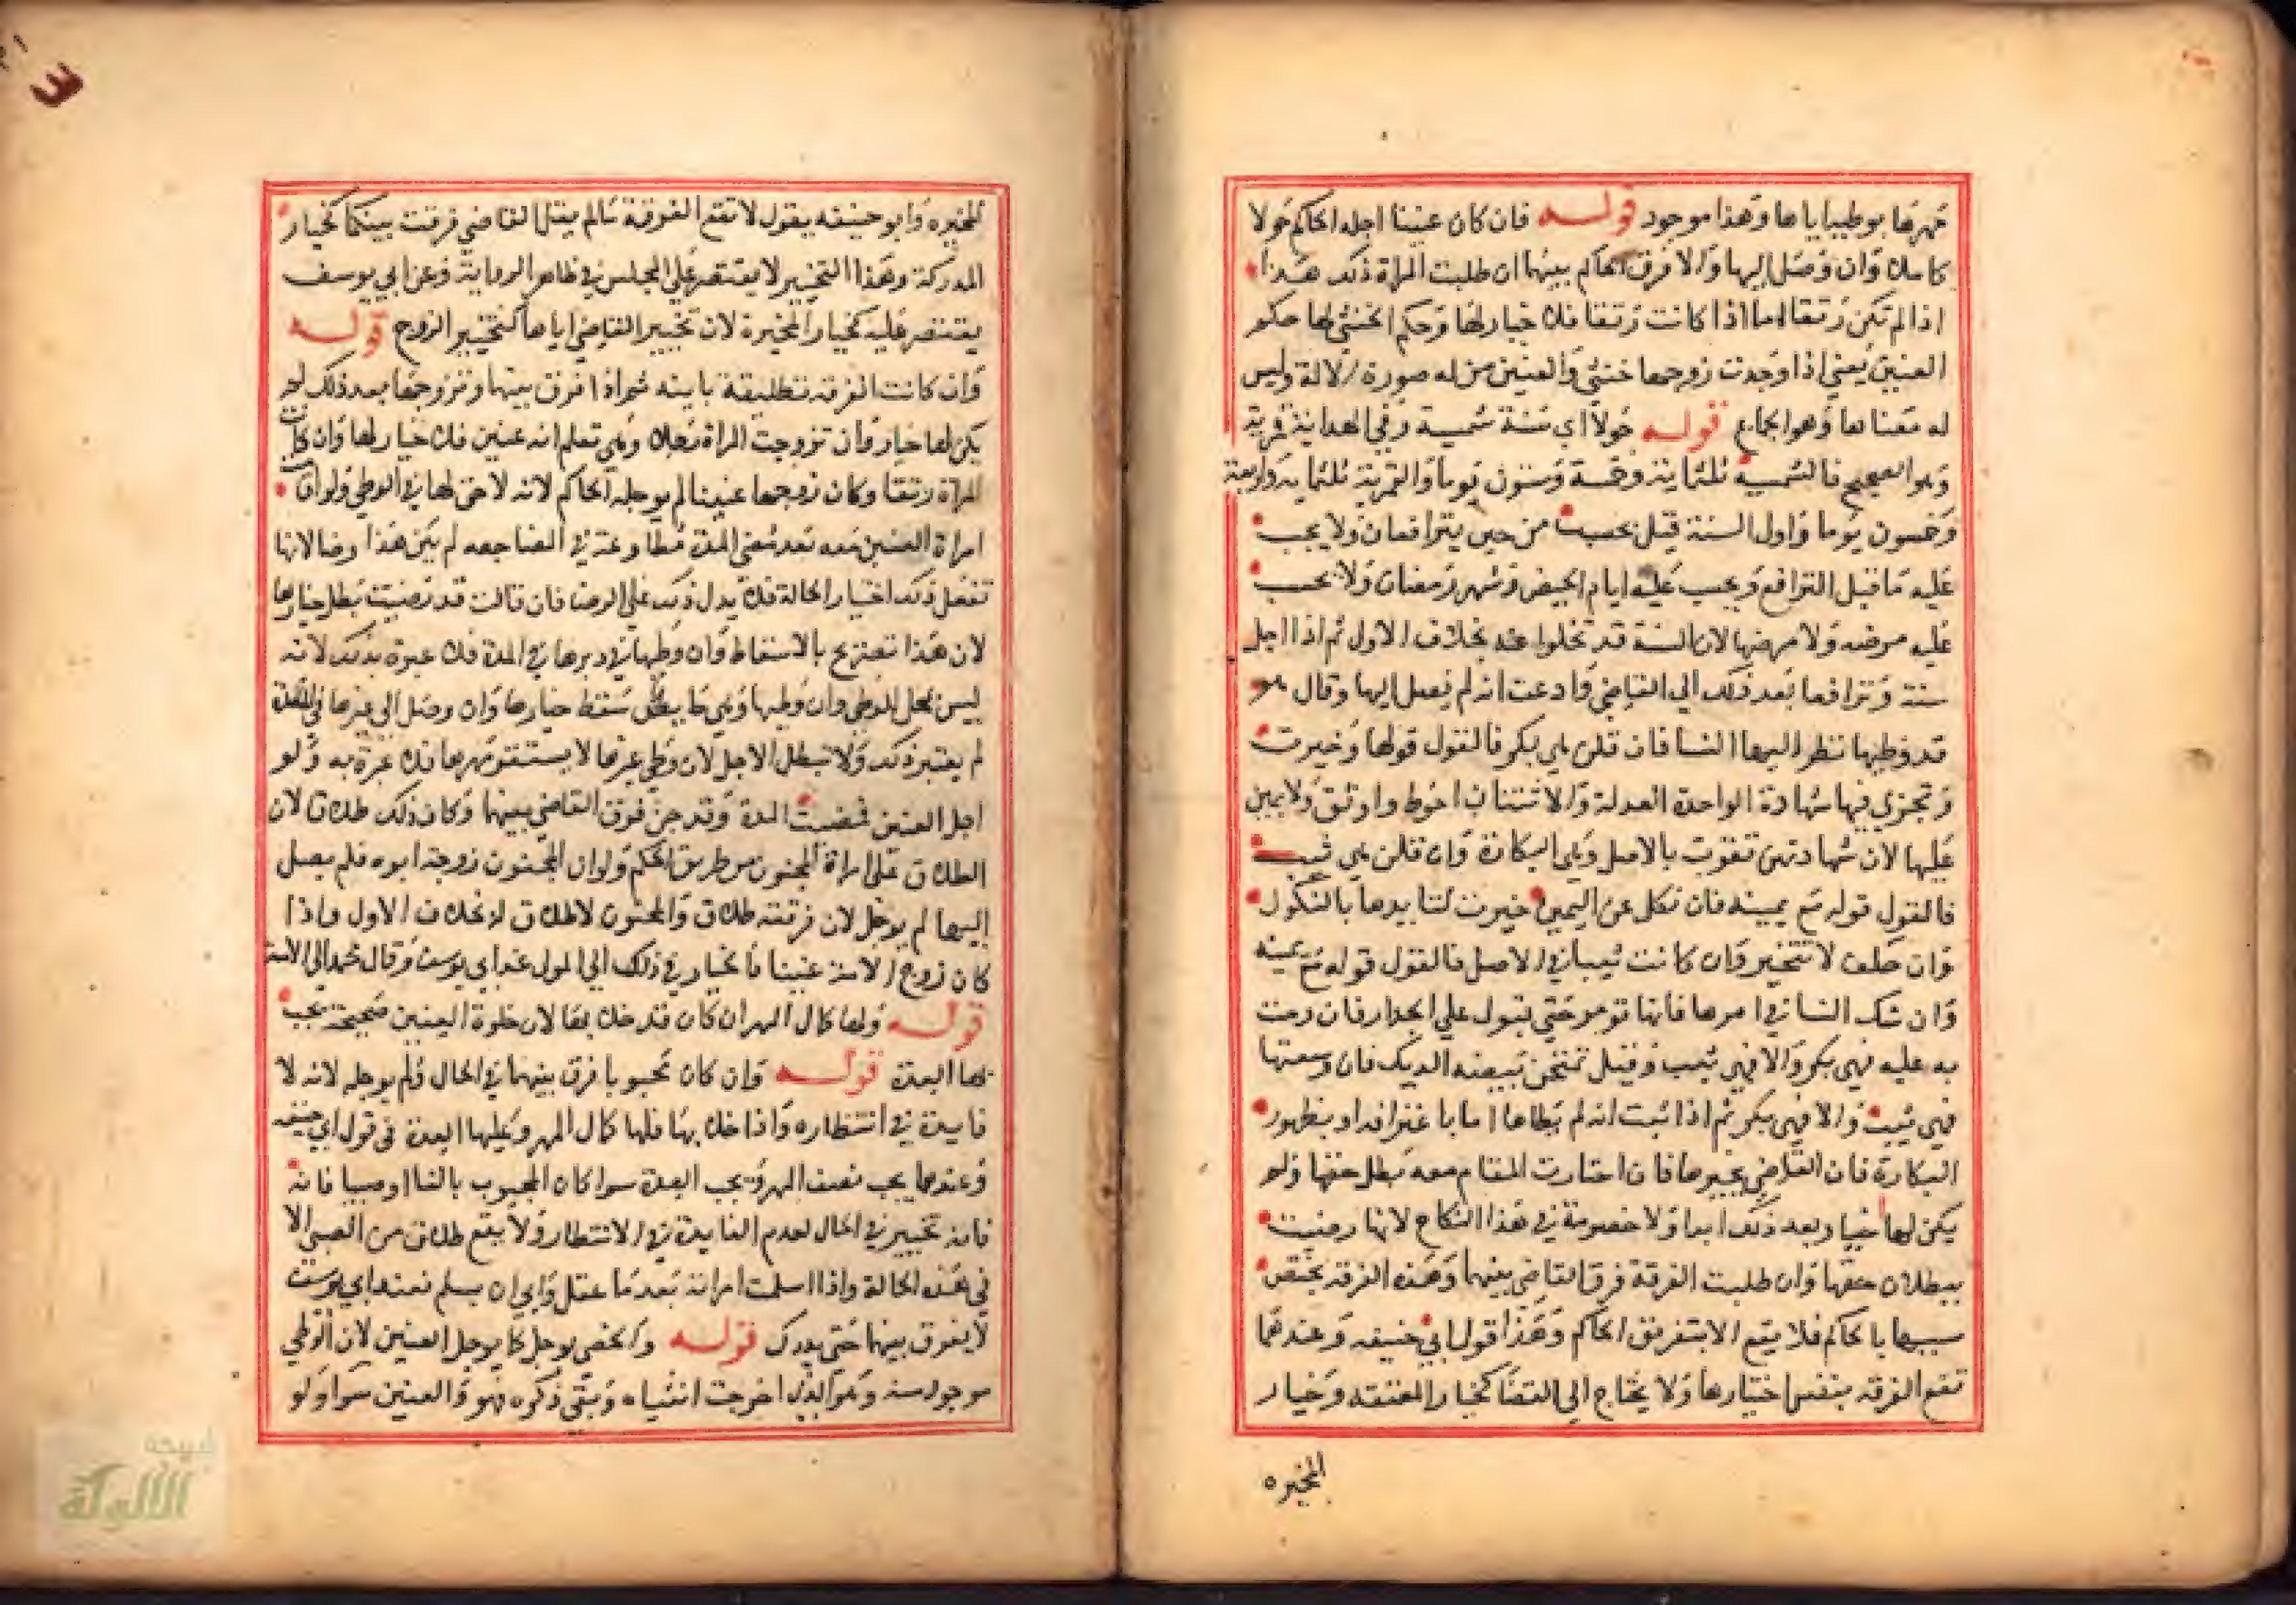 مهرها بوطيها اياها وهذا موجود قوله فان كان عنينا اجله الحاكم حولا
كاملا وان وصل اليها والا فرق الحاكم بينهما ان طلبت المراة ذلك هذا
اذا لم تكن رتقا اما اذا كانت رتقا فلا خيار لها وحكم الخنثى لها حكم
العنين يعني اذا وجدت زوجها خنثى والعنين من له صورة الالة وليس
له معناها وهو الجماع قوله حولا اي سنة شمسية وفي الهداية قمرية
وهو الصحيح فالشمسية ثلثماية وخمسة وستون يوما والقمرية ثلثماية واربعة
وخمسون يوما واول السنة قيل يحسب من حين يترافعان ولا يحسب
عليه ما قبل الترافع ويحسب عليه ايام الحيض وشهر رمضان ولا يحسب
عليه مرضه ولا مرضها لان السنة قد تخلوا عنه بخلاف الاول ثم اذا اجل
سنة وترافعا بعد ذلك الي القاضي وادعت انه لم يصل اليها وقال هو
قد وطيتها نظر اليها النسا فان قلن هي بكر فالقول قولها وخيرت
وتجزي فيها شهادة الواحدة العدلة والاثنتان احوط واوثق ولا يمين
عليها لان شهادتهن تقوت بالاصل وهي البكارة وان قلن هي ثيب
فالقول قوله مع يمينه فان نكل عن اليمين خيرت لتاييدها بالنكول
وان حلف لا تتخير وان كانت ثيبا في الاصل فالقول قوله مع يمينه
وان شك النسا في امرها فانها تومر حتى تبول علي الجدار فان رمت
به عليه فهي بكر والا فهي ثيب وقيل تمتحن ببيضة الديك فان وسعتها
فهي ثيب والا فهي بكر ثم اذا ثبت انه لم يطاها اما باعترافه او بظهور
البكارة فان القاضي يخيرها فان اختارت المقام معه بطل حقها ولم
يكن لها خيار بعد ذلك ابدا ولا خصومة في هذا النكاح لانها رضيت
ببطلان حقها وان طلبت الفرقة فرق القاضي بينهما وهذه الفرقة يختص
سببها بالحاكم فلا يقع الا بتفريق الحاكم وهذا قول ابي حنيفه وعندهما
تقع الفرقه بنفس اختيارها ولا يحتاج الي القضا كخيار المعتقه وخيار
المخيره
المخيره وابو حنيفه يقول لا تقع الفرقة مالم يقل القاضي فرقت بينكما كخيار
المدركة وهذا التخيير لا يقتصر علي المجلس في ظاهر الرواية وعن ابي يوسف
يقتصر عليه كخيار المخيرة لان تخيير القاضي اياها كتخيير الزوج قوله
وان كانت الفرقه تطليقة باينه ثم اذا فرق بينهما وتزوجها بعد ذلك لم
يكن لها خيار وان تزوجت المراة رجلا وهي تعلم انه عنين فلا خيار لها وان كانت
المراة رتقا وكان زوجها عنينا لم يوجله الحاكم لانه لا حق لها في الوطي ولو اقامت
امراة العنين معه بعد مضي المدة مطاوعة في المضاجعه لم يكن هذا رضا لانها
تفعل ذلك اختيار الحالة فلا يدل ذلك على الرضا فان قالت قد رضيت بطل خيارها
لان هذا تصريح بالاسقاط وان وطيها في دبرها في المدة فلا عبرة بذلك لانه
ليس بمحل للوطي وان وطيها وهي حايض سقط خيارها وان وصل الي غيرها في المدة
لم يعتبر ذلك ولا تبطل الاجل لان وطي غيرها لا يستقر مهرها فلا عبرة به ولو
اجل العنين فمضت المدة وقد جن فرق القاضي بينهما وكان ذلك طلاقا لان
الطلاق على امراة المجنون من طريق الحكم ولو ان المجنون زوجه ابوه فلم يصل
اليها لم يوجل لان فرقته طلاق والمجنون لا طلاق له بخلاف الاول واذا
كان زوج الامة عنينا فالخيار في ذلك الي المولى عند ابي يوسف وقال محمد الي الامة
قوله ولها كمال المهر ان كان قد خلا بها لان خلوة العنين صحيحة يجب
بها العدة قوله وان كان مجبوبا فرق بينهما في الحال ولم يوجله لانه لا
فايدة في انتظاره واذا خلا بها فلها كمال المهر وعليها العدة في قول ابي حنيفه
وعندهما يجب نصف المهر ويجب العدة سوا كان المجبوب بالغا او صبيا فانه
فانه تخيير في الحال لعدم الفايدة في الانتظار ولا يقع طلاق من الصبي الا
في هذه الحالة واذا اسلمت امراته بعد ما عقل وابى ان يسلم فعند ابي يوسف
لا يفرق بينهما حتى يدرك قوله والخصي يوجل كما يوجل العنين لان الوطي
موجود منه وهو الذي اخرجت انثياه وبقي ذكره فهو والعنين سوا ولو
شبكة
الألوكة